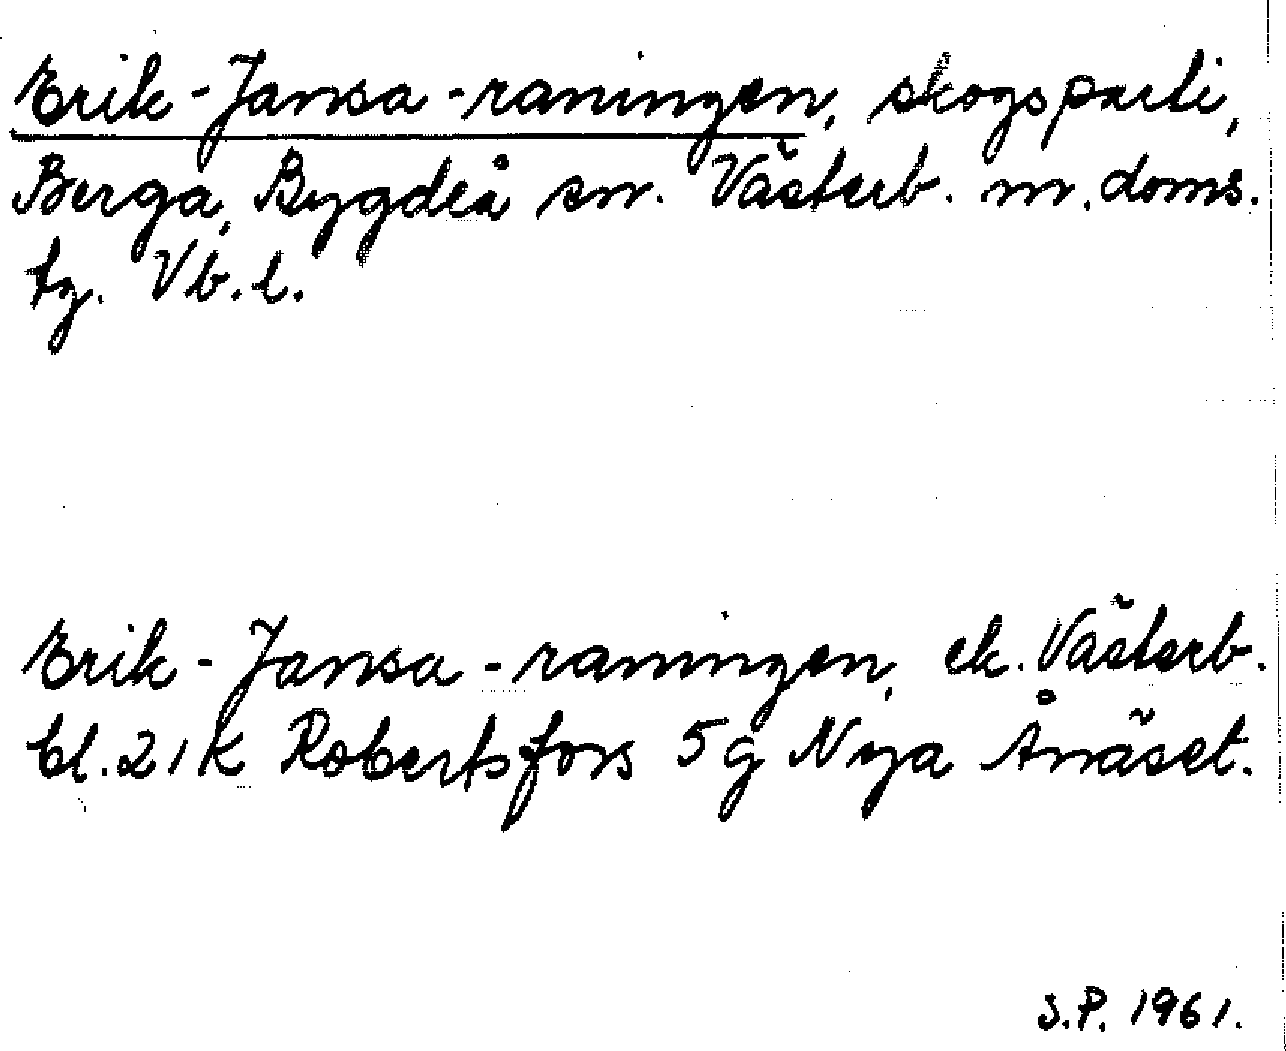 Erik-Jansa-raningen, skogsparti,
Berga, Bygdeå sn. Västerb. m. doms.
tg. Vb. l.
Erik-Jansa-raningen, ek. Västerb.
bl. 21 K Robertsfors 5 g Nya Ånäset.
S.P. 1961.